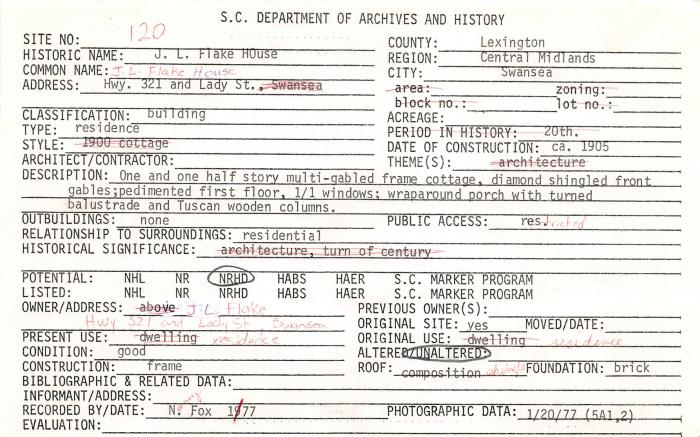 S.C. DEPARTMENT OF ARCHIVES AND HISTORY
SITE NO: 120
HISTORIC NAME: J. L. Flake HOuse
COMMON NAME: J. L. Flake House
ADDRESS: Hwy. 321 and Lady St., Swansea
COUNTY: Lexington
REGION: Central Midlands
CITY: Swansea
area: zoning:
block no.: lot no.:
CLASSIFICATION: building
TYPE: residence
STYLE: 1900 cottage
ARCHITECT/CONTRACTOR:
ACREAGE:
PERIOD IN HISTORY: 20th.
DATE OF CONSTRUCTION: ca. 1905
THEME(S): architecture
DESCRIPTION: One and one half story multi-gabled frame cottage, diamond shingled front
gables;pedimented first floor, 1/1 windows; wraparound porch with turned
balustrade and Tuscan wooden columns.
OUTBUILDINGS: none
PUBLIC ACCESS: restricted
RELATIONSHIP TO SURROUNDINGS: residential
HISTORICAL SIGNIFICANCE: architecture, turn of century
POTENTIAL: NHL NR NRHD HABS HAER S.C. MARKER PROGRAM
LISTED: NHL NR NRHD HABS HAER S.C. MARKER PROGRAM
OWNER/ADDRESS: above J. L. Flake
Hwy 321 and Lady St Swansea
PREVIOUS OWNER(S):
ORIGINAL SITE: yes MOVED/DATE:
PRESENT USE: dwelling residence
ORIGINAL USE: dwelling residence
CONDITION: good
ALTERED/UNALTERED:
CONSTRUCTION: frame
ROOF: composition shingle FOUNDATION: brick
BIBLIOGRAPHIC & RELATED DATA:
INFORMANT/ADDRESS:
RECORDED BY/DATE: N. Fox 1977
PHOTOGRAPHIC DATA: 1/20/77 (5A1,2)
EVALUATION: